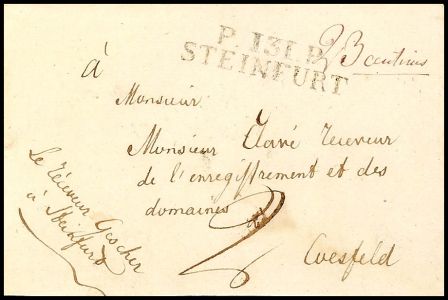 P. 131. P.
STEINFURT
3 centimes
à
Monsieur
Monsieur Receveur
de l'enregissrement et des
domaines
Coesfeld
Le receveur
à Steinfurt